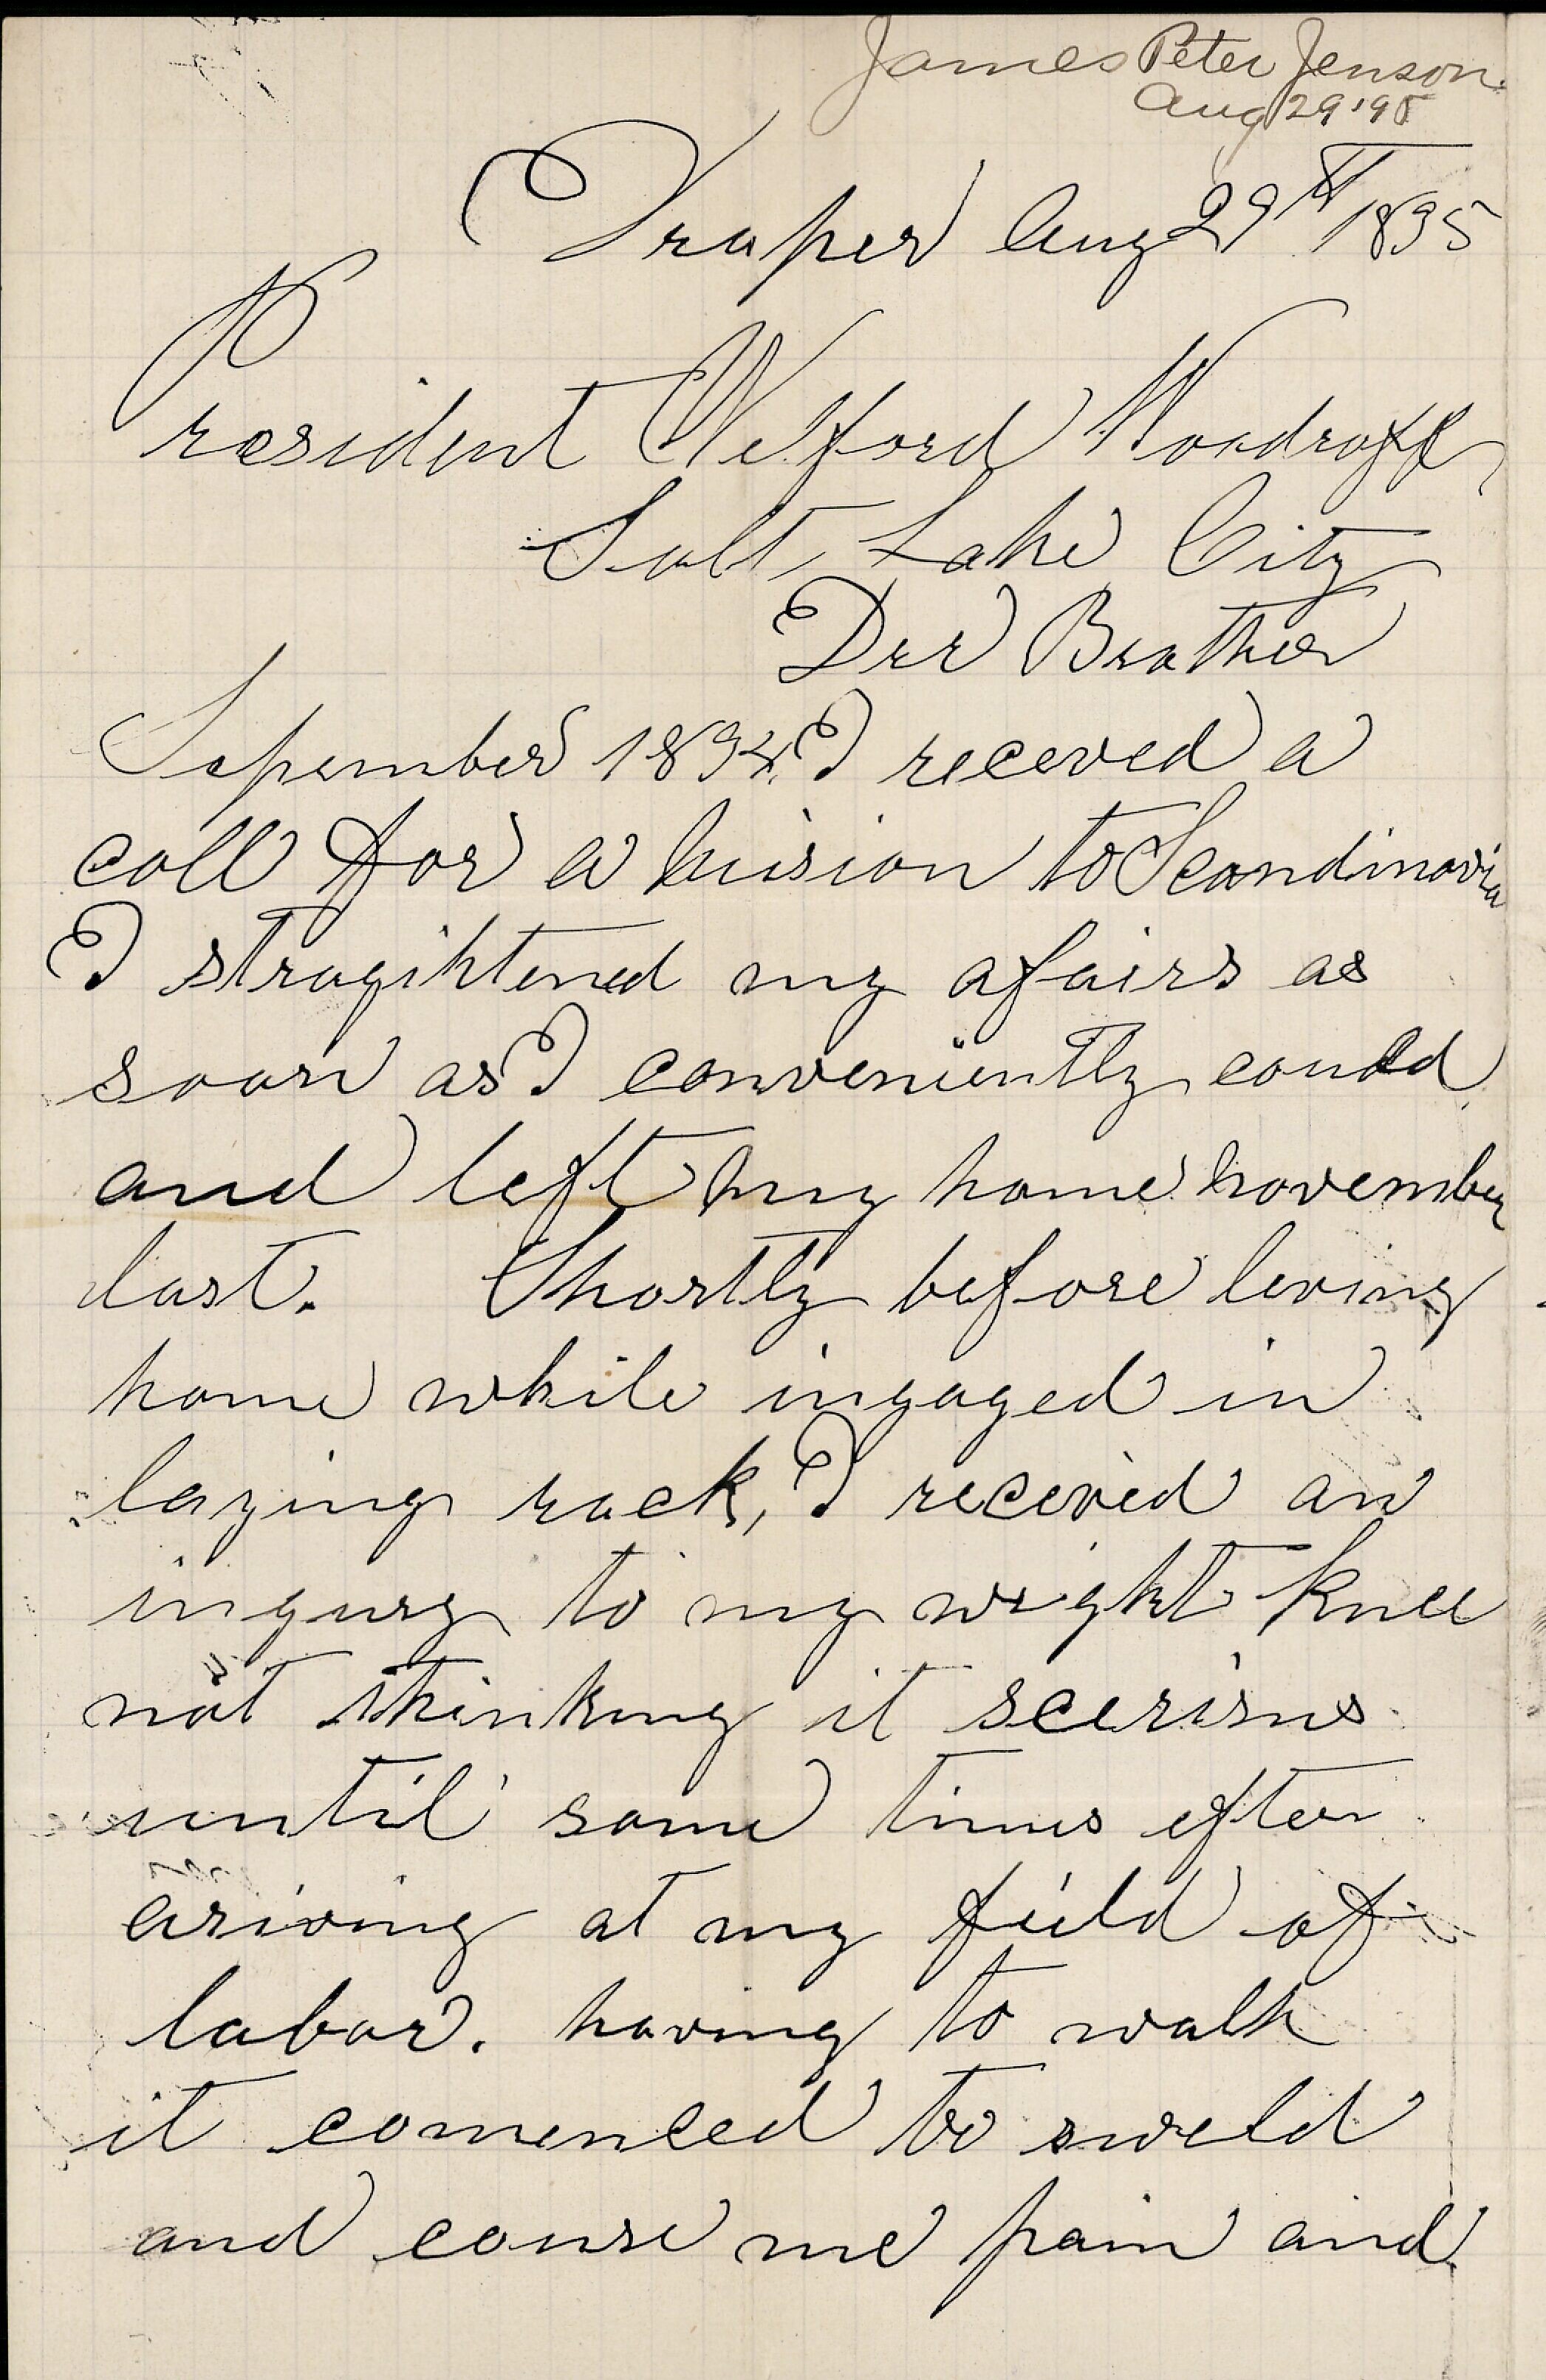 James Peter Jenson.
Aug 29 '95
Draper Aug 29th 1895
President Welford Woodroff
Salt Lake City
Der Brother
Sepember 1894. I receved a
call for a mision to Scandinavia
I stragihtened my afairs as
soon as I conveniently could
and left my home november
last. Shortly before leving
home while ingaged in
laying rock, I recevied an
ingury to my wright knee
not thinking it scerisus
until some times efter
ariving at my field of
labor. having to walk
it comenced to sweld
and couse me pain and